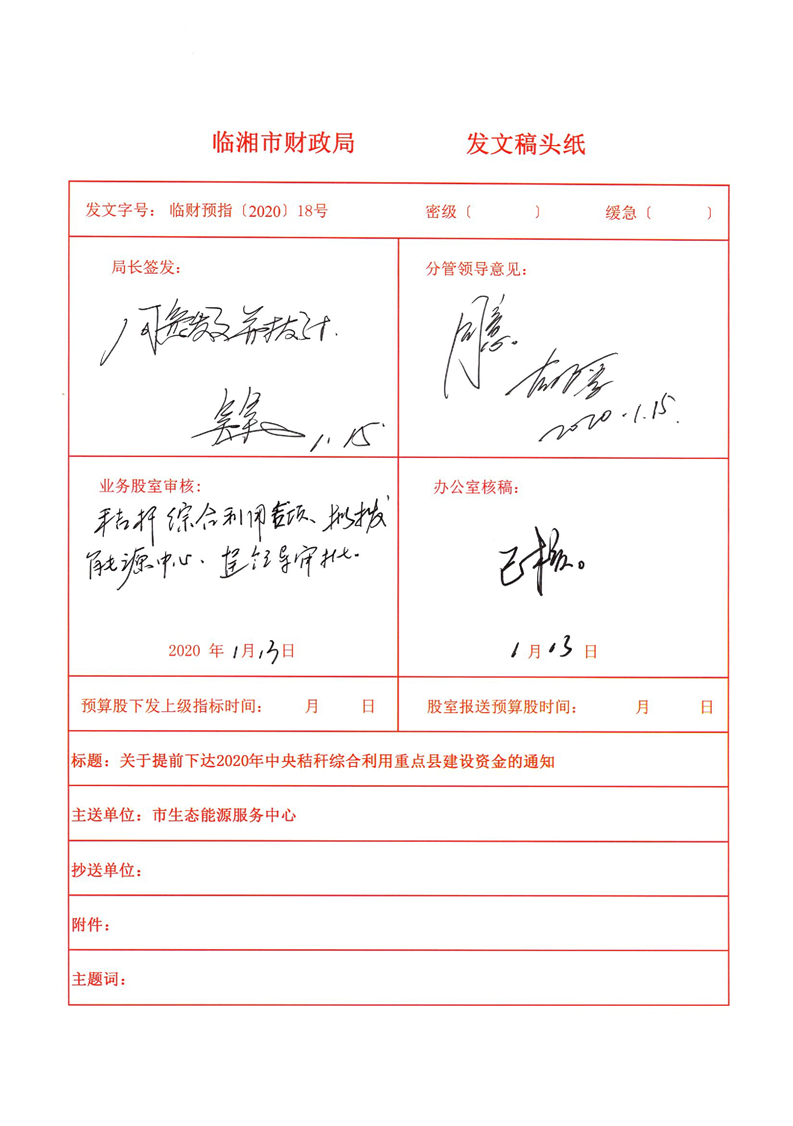 临湘市财政局 发文稿头纸
发文字号： 临财预指〔2020〕18号 密级〔 〕 缓急〔 〕
局长签发：
1.15
分管领导意见：
同意。
2020.1.15.
业务股室审核：
秸秆综合利用专项、拟拨
能源中心、呈领导审批。
2020 年 1月13日
办公室核稿：
已核。
1月13日
预算股下发上级指标时间： 月 日 股室报送预算股时间： 月 日
标题：关于提前下达2020年中央秸秆综合利用重点县建设资金的通知
主送单位：市生态能源服务中心
抄送单位：
附件：
主题词：